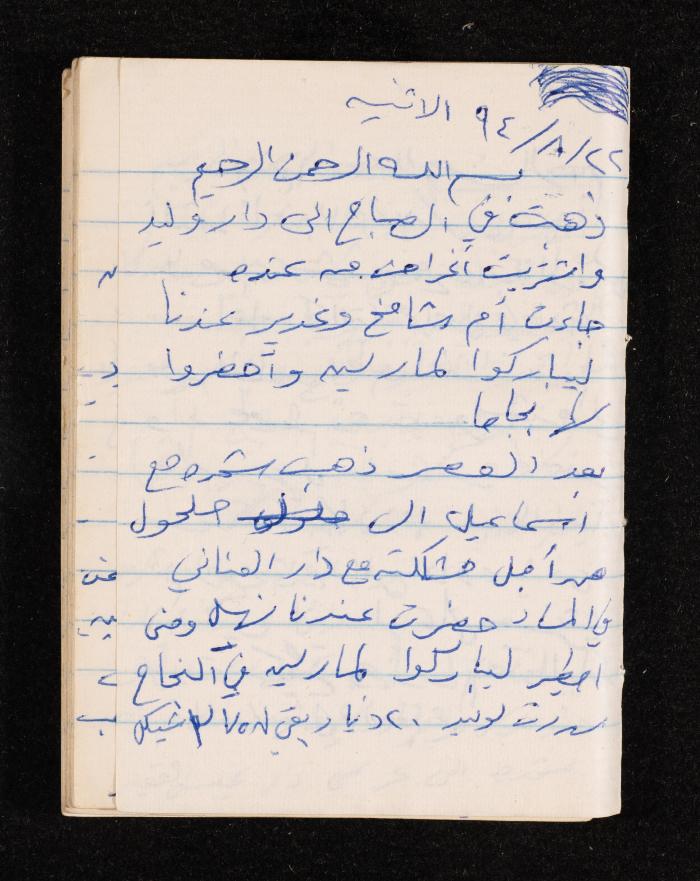 ٢٢/٨/٩٤ الاثنين
بسم الله الرحمن الرحيم
ذهبت في الصباح الى دار وليد
واشتريت أغراض من عنده
جاءت أم شامخ وغدير عندنا
ليباركوا لمارلين وأحضروا
بجاما
بعد العصر ذهب مع
اسماعيل الى حلحول
من أجل مشكلته مع دار العناني
في المساء حضرت عندنا نهيل ومنى
اطير ليباركوا لمارلين في النجاح
سددت لوليد ٢٠ دينار بقي شيكل